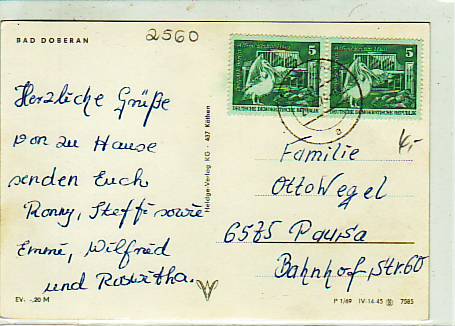 BAD DOBERAN
2560
5
5
DEUTSCHE DEMOKRATISCHE REPUBLIK
DEUTSCHE DEMOKRATISCHE REPUBLIK
Herzliche Grüße
von zu Hause
senden Euch
Ronny, Steffi sowie
Emmi, Wilfried
und Roswitha.
EV. -,20 M
Heldge-Verlag KG · 437 Köthen
Familie
Otto Wegel
6575 Pausa
Bahnhof.Str.60
P 1/69 IV-14-45 7585